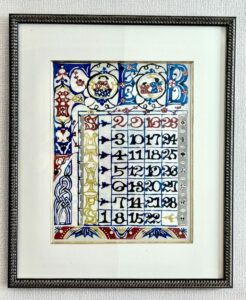 B
S 2 9 16 23
M 3 10 17 24
T 4 11 18 25
W 5 12 19 26
T 6 13 20 27
F 7 14 21 28
S 1 8 15 22